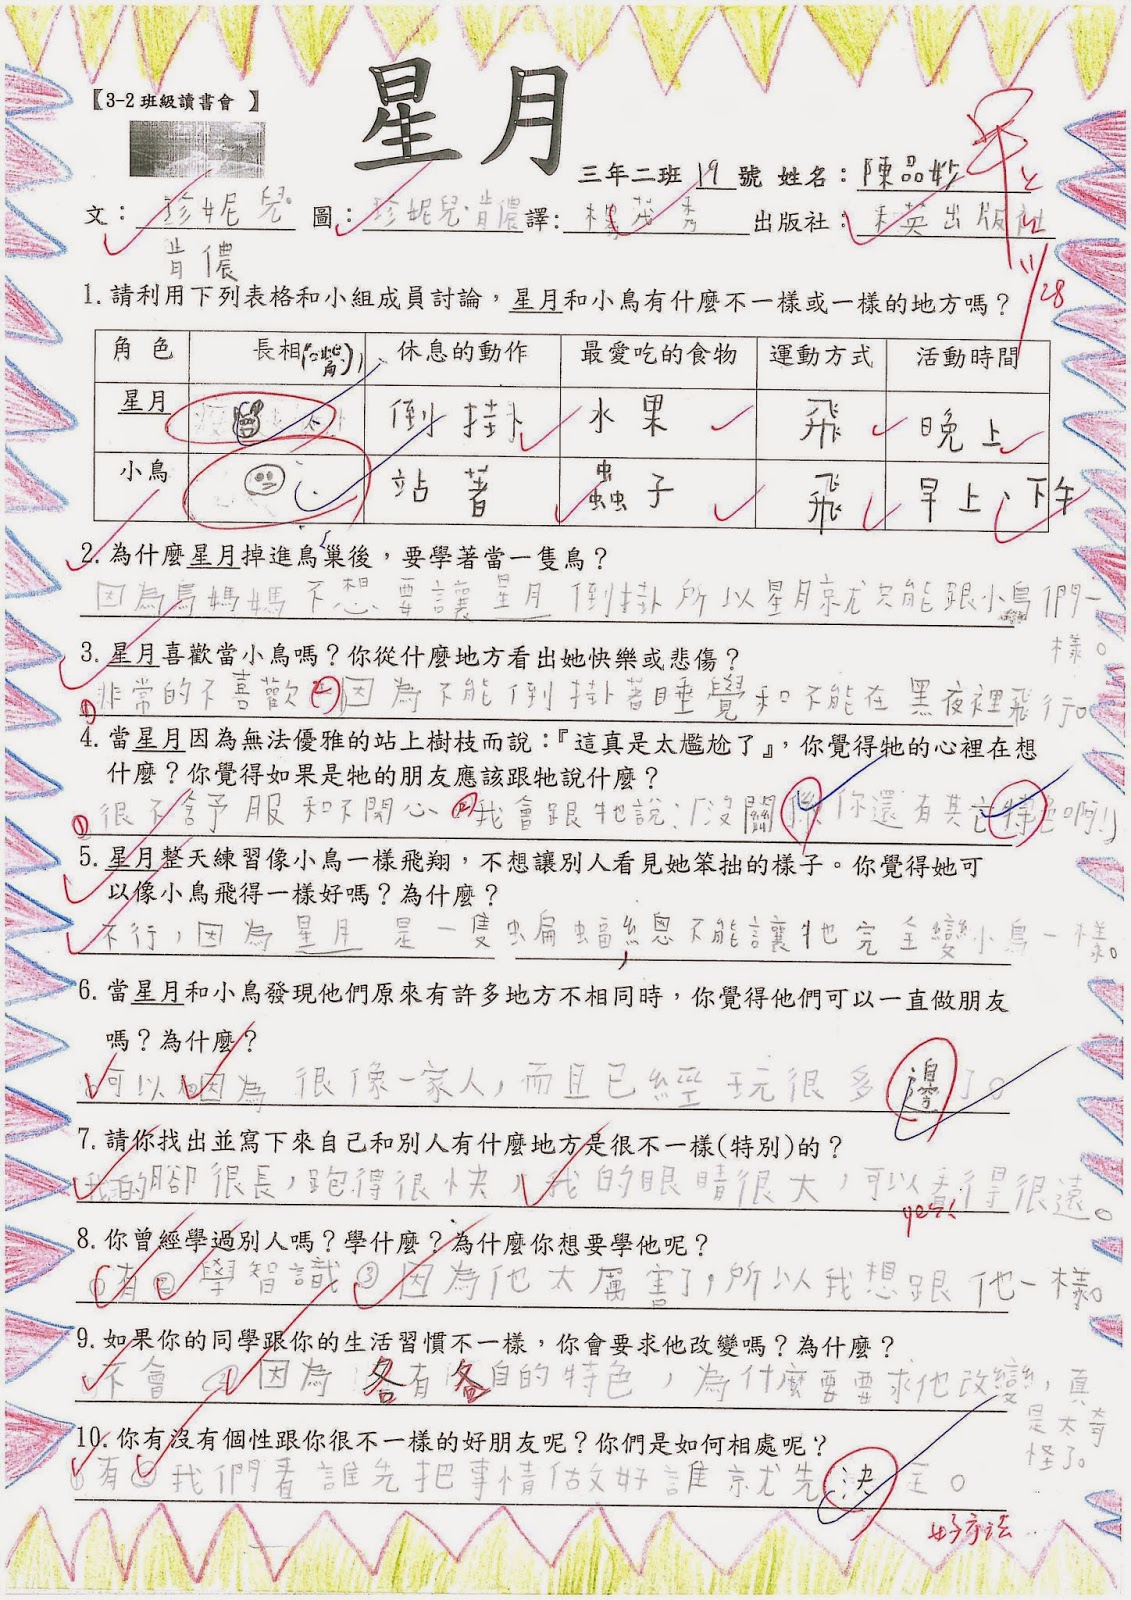 【3-2 班級讀書會 】
星月
三年二班 19 號 姓名：陳品妙
文：珍妮兒 圖：珍妮兒·肯儂 譯：楊茂秀 出版社：和英出版社
肯儂
11/28
1.請利用下列表格和小組成員討論，星月和小鳥有什麼不一樣或一樣的地方嗎？
角 色 長相 休息的動作 最愛吃的食物 運動方式 活動時間
星月 倒掛 水果 飛 晚上
小鳥 站著 蟲子 飛 早上、下午
2.為什麼星月掉進鳥巢後，要學著當一隻鳥？
因為鳥媽媽不想要讓星月倒掛所以星月就只能跟小鳥們一
樣。
3.星月喜歡當小鳥嗎？你從什麼地方看出她快樂或悲傷？
①非常的不喜歡②因為不能倒掛著睡覺和不能在黑夜裡飛行。
4.當星月因為無法優雅的站上樹枝而說：『這真是太尷尬了』，你覺得牠的心裡在想
什麼？你覺得如果是牠的朋友應該跟牠說什麼？
①很不舒服和不開心②我會跟牠說：「沒關係你還有其它特色啊!」
5.星月整天練習像小鳥一樣飛翔，不想讓別人看見她笨拙的樣子。你覺得她可
以像小鳥飛得一樣好嗎？為什麼？
不行，因為星月是一隻蝙蝠，總不能讓牠完全變小鳥一樣。
6.當星月和小鳥發現他們原來有許多地方不相同時，你覺得他們可以一直做朋友
嗎？為什麼？
①可以②因為很像一家人，而且已經玩很多邊了。
7.請你找出並寫下來自己和別人有什麼地方是很不一樣(特別)的？
我的腳很長，跑得很快，我的眼睛很大，可以看得很遠。
yes!
8.你曾經學過別人嗎？學什麼？為什麼你想要學他呢？
①有②學智識③因為他太厲害了，所以我想跟他一樣。
9.如果你的同學跟你的生活習慣不一樣，你會要求他改變嗎？為什麼？
不會②因為各有各自的特色，為什麼要要求他改變，真
是太奇
怪了。
10.你有沒有個性跟你很不一樣的好朋友呢？你們是如何相處呢？
①有②我們看誰先把事情做好誰就先決定。
好方法